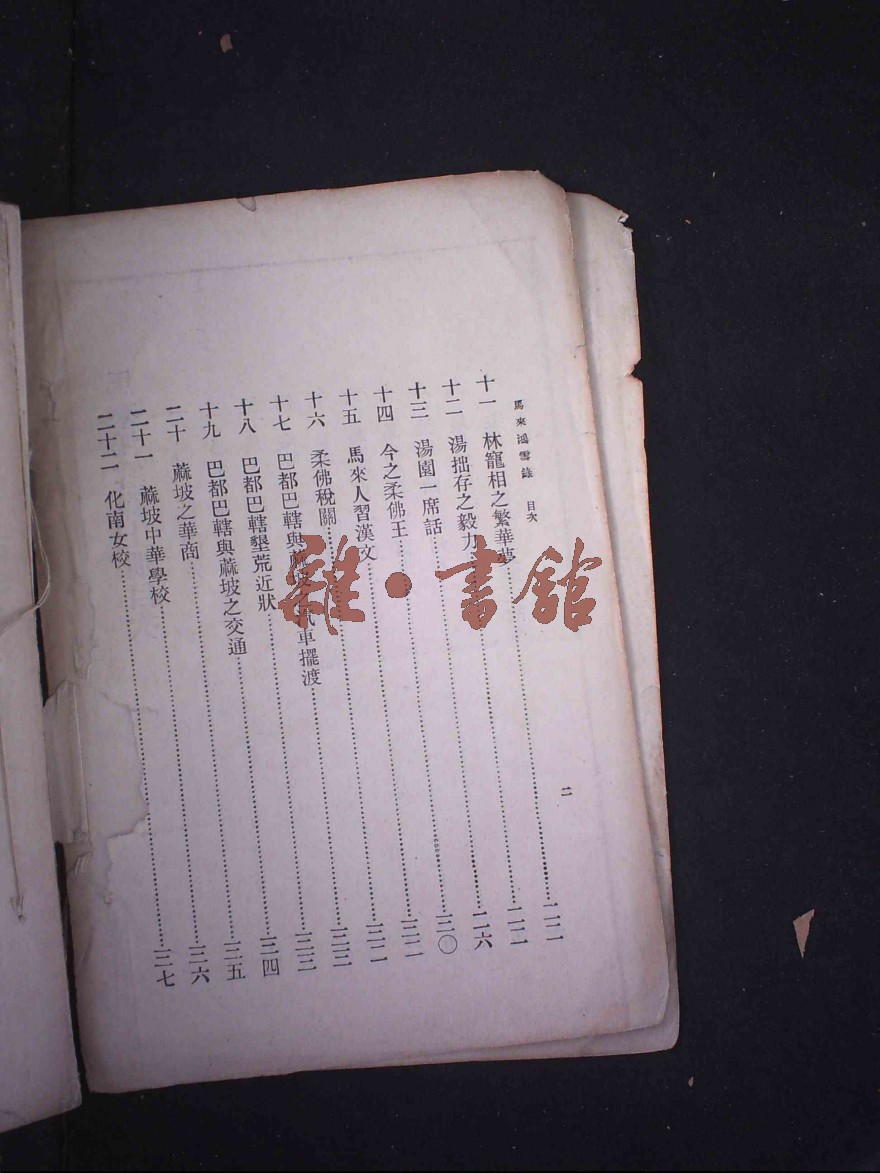 馬來鴻雪錄 目次 二
十一 林寵相之繁華夢 二二
十二 湯拙存之毅力 二二
十三 湯園一席話 二六
十四 今之柔佛王 三〇
十五 馬來人習漢文 三二
十六 柔佛稅關 三二
十七 巴都巴轄與蔴坡之汽車擺渡 三三
十八 巴都巴轄墾荒近狀 三三
十九 巴都巴轄與蔴坡之交通 三四
二十 蔴坡之華商 三五
二十一 蔴坡中華學校 三六
二十二 化南女校 三七
雜·書館